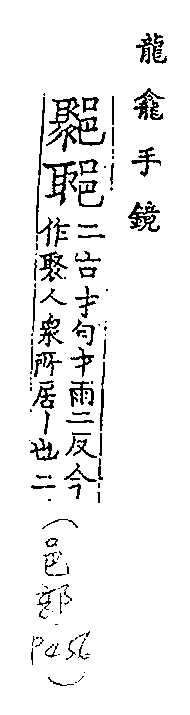 龍龕手鏡
二古才句才雨二反今
作聚人衆所居丨也二
(邑部 P456)